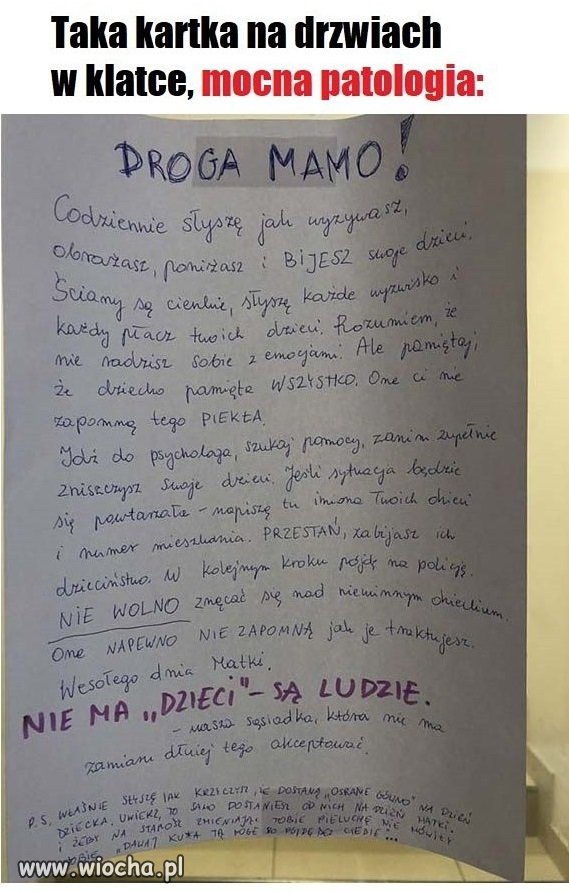 Taka kartka na drzwiach
w klatce, mocna patologia:
DROGA MAMO!
Codziennie słyszę jak wyzywasz,
obrażasz, poniżasz i BIJESZ swoje dzieci.
Ściany są cienkie, słyszę każde wyzwisko i
każdy płacz twoich dzieci. Rozumiem, że
nie radzisz sobie z emocjami. Ale pamiętaj,
że dziecko pamięta WSZYSTKO. One ci nie
zapomną tego PIEKŁA.
Idź do psychologa, szukaj pomocy, zanim zupełnie
zniszczysz swoje dzieci. Jeśli sytuacja będzie
się powtarzała - napiszę tu imiona Twoich dzieci
i numer mieszkania. PRZESTAŃ, zabijasz ich
dzieciństwo. W kolejnym kroku pójdę na policję.
NIE WOLNO znęcać się nad niewinnym dzieckiem.
One NAPEWNO NIE ZAPOMNĄ jak je traktujesz.
Wesołego dnia Matki.
NIE MA „DZIECI" - SĄ LUDZIE.
- wasza sąsiadka, która nie ma
zamiaru dłużej tego akceptować.
P.S. WŁAŚNIE SŁYSZĘ JAK KRZYCZYSZ, ŻE DOSTANĄ „OSRANE GÓWNO" NA DZIEŃ
DZIECKA. UWIERZ, TO SAMO DOSTANIESZ OD NICH NA DZIEŃ MATKI.
I ŻEBY NA STAROŚĆ ZMIENIAJĄC TOBIE PIELUCHĘ NIE MÓWIŁY
TOBIE „DAWAJ KURWA TĄ NOGĘ BO PÓJDĘ BEZ CIEBIE"...
www.wiocha.pl